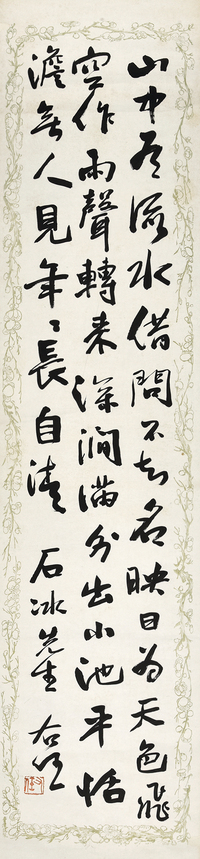 山中有流水借問不知名映日為天色飛
空作雨聲轉来深澗滿分出小池平恬
澹無人見年々長自清 石冰先生 右任
右任